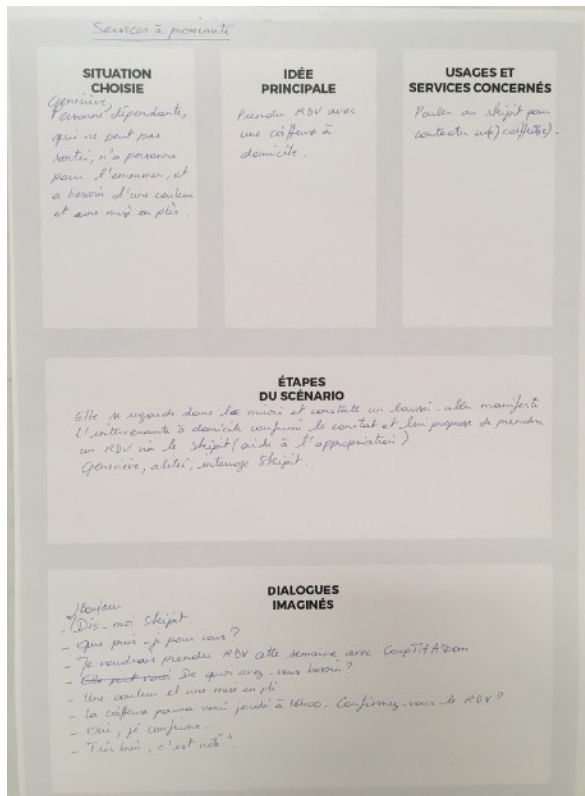 Services à proximité
SITUATION
CHOISIE
Geneviève,
Personne dépendante,
qui ne peut pas
sortir, n'a personne
pour l'emmener, et
a besoin d'une couleur
et d'une mise en plis.
IDÉE
PRINCIPALE
Prendre RDV avec
une coiffeuse à
domicile.
USAGES ET
SERVICES CONCERNÉS
Parler au skipit pour
contacter un(e) coiffeur(se).
ÉTAPES
DU SCÉNARIO
Elle se regarde dans le miroir et constate un laisser-aller manifeste
L'intervenante à domicile confirme le constat et lui propose de prendre
un RDV via le skipit (aide à l'appropriation).
Geneviève, alitée, interroge Skipit.
DIALOGUES
IMAGINÉS
Bonjour
- Dis-moi Skipit
- Que puis-je pour vous?
- Je voudrais prendre RDV cette semaine avec
- De quoi avez-vous besoin?
- Une couleur et une mise en pli
- La coiffeuse pourra venir jeudi à 16h00. Confirmez-vous le RDV?
- Oui, je confirme.
- Très bien, c'est noté!